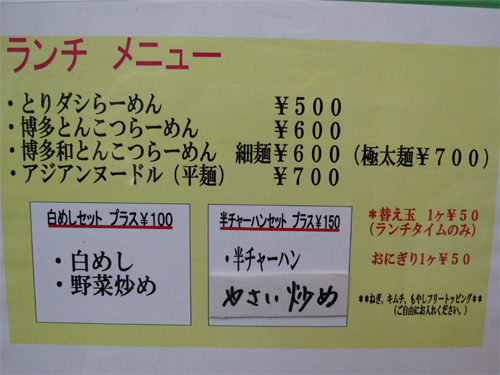 ランチ メニュー
・とりダシらーめん ￥500
・博多とんこつらーめん ￥600
・博多和とんこつらーめん 細麺￥600（極太麺￥700）
・アジアンヌードル（平麺） ￥700
白めしセット プラス￥100
・白めし
・野菜炒め
半チャーハンセット プラス￥150
・半チャーハン
やさい炒め
＊替え玉 1ヶ￥50
（ランチタイムのみ）
おにぎり1ヶ￥50
**ねぎ、キムチ、もやしフリートッピング**
（ご自由にお入れください。）